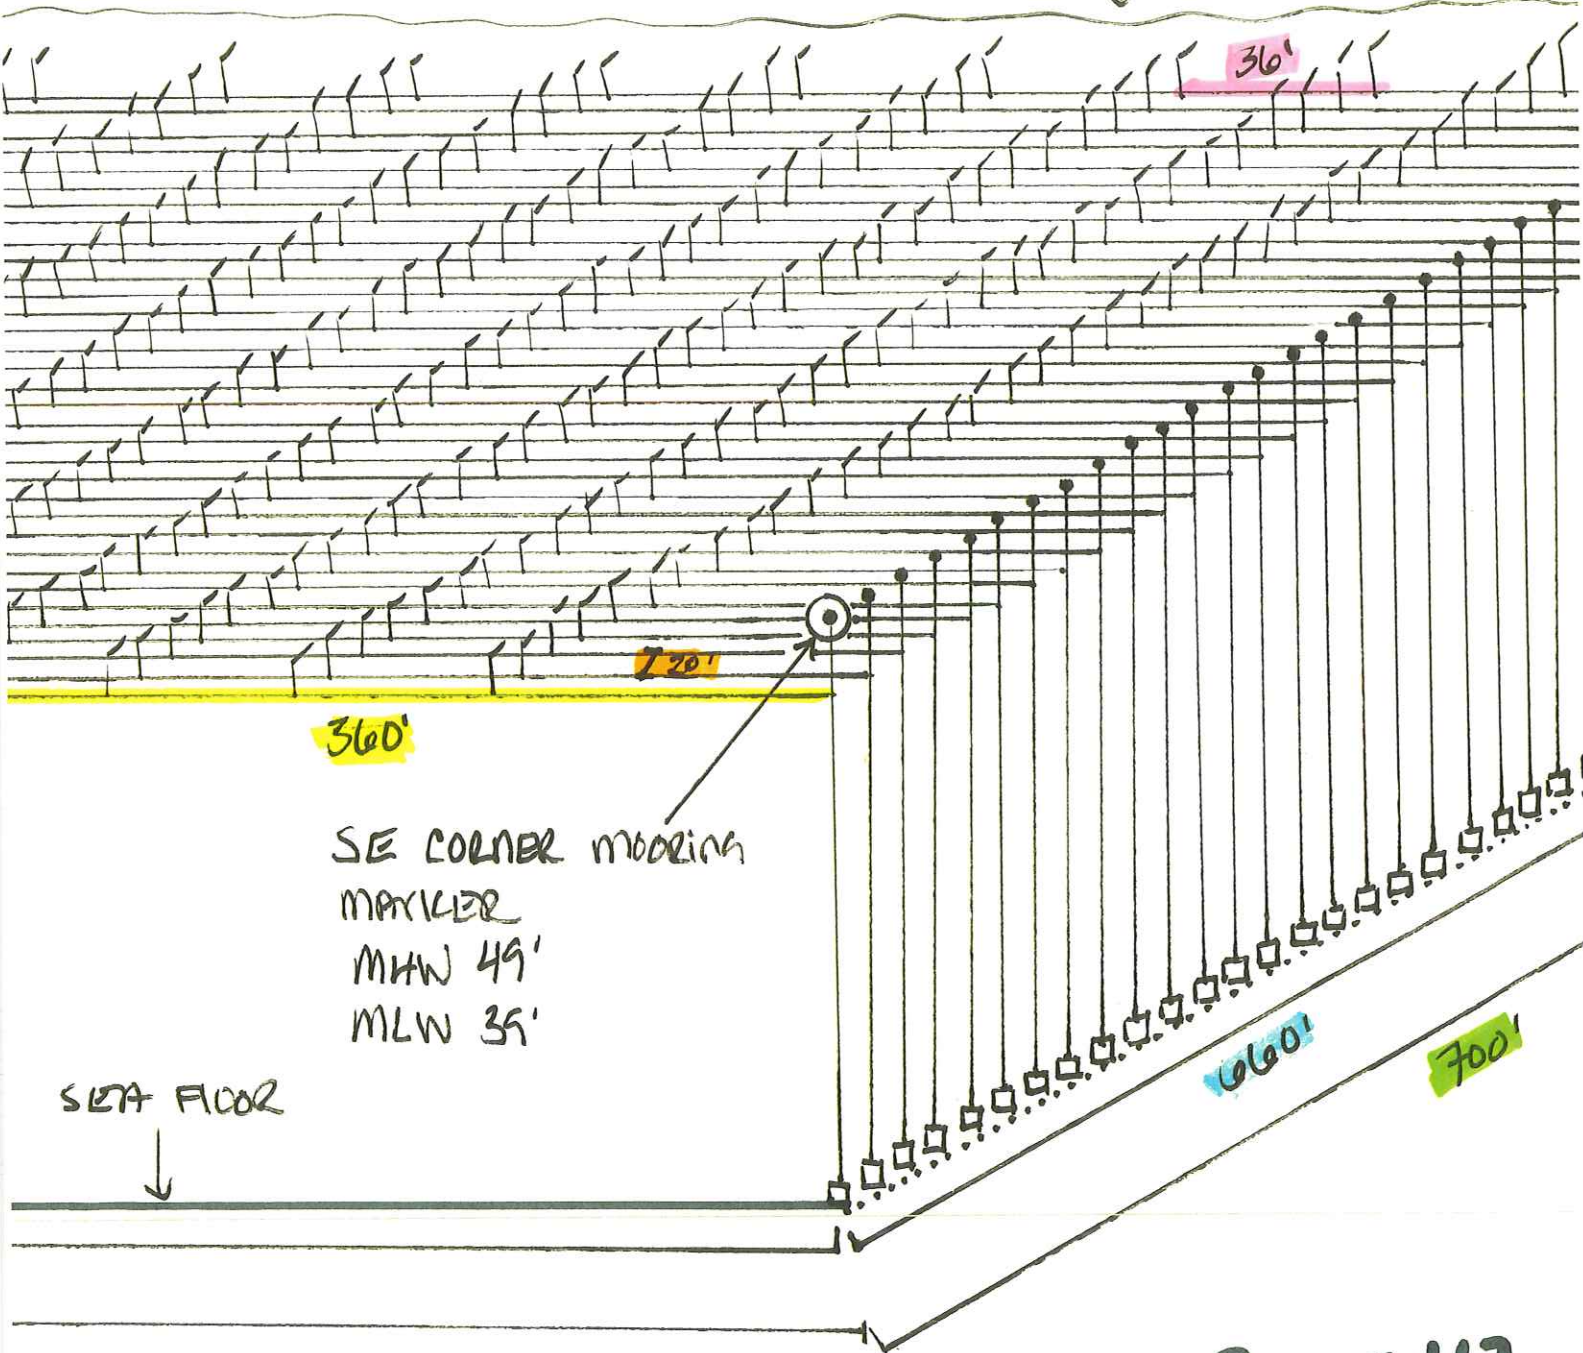 36'
I 20'
360'
SE CORNER MOORING
MARKER
MHW 49'
MLW 39'
SEA FLOOR
660'
700'